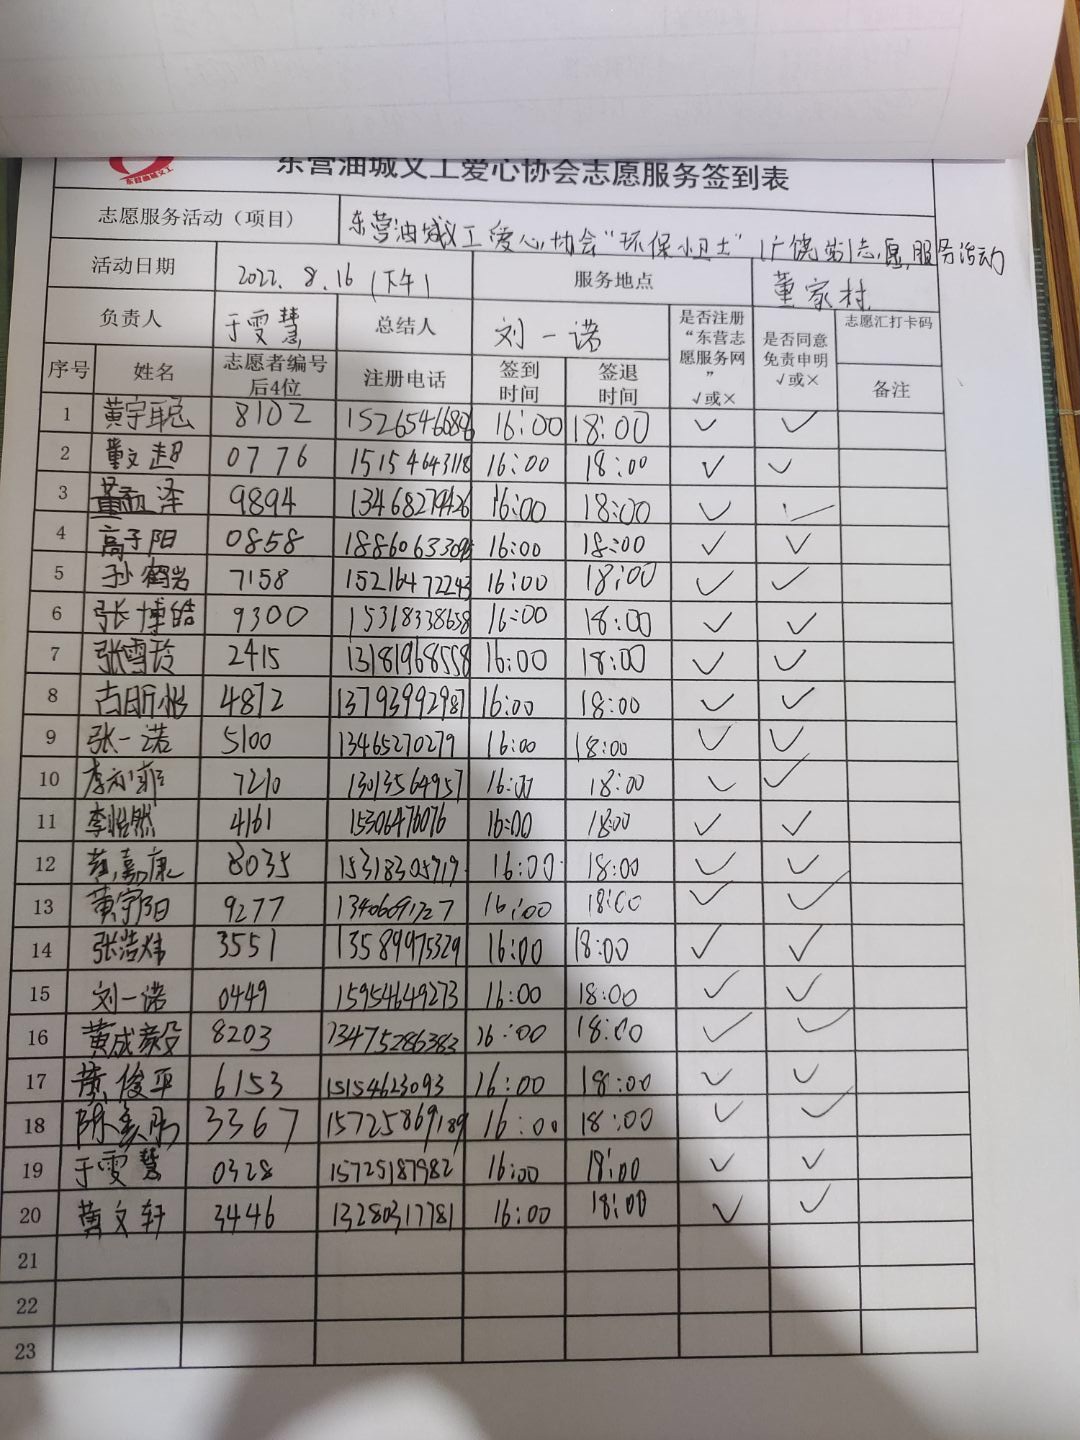 东营油城义工
东营油城义工爱心协会志愿服务签到表
志愿服务活动（项目） 东营油城义工爱心协会“环保小卫士”（广饶站）志愿服务活动
活动日期 2022.8.16（下午） 服务地点 董家村
负责人 于雯慧 总结人 刘一诺 是否注册“东营志愿服务网” √或× 是否同意免责申明 √或× 志愿汇打卡码
序号 姓名 志愿者编号后4位 注册电话 签到时间 签退时间 备注
1 黄宇聪 8102 15265466896 16:00 18:00 √ √
2 董文超 0776 15154643118 16:00 18:00 √ √
3 董 泽 9894 13468279426 16:00 18:00 √ √
4 高子阳 0858 16:00 18:00 √ √
5 孙鹤岩 7158 15216472243 16:00 18:00 √ √
6 张博皓 9300 15318338658 16:00 18:00 √ √
7 张雪玲 2415 13181968558 16:00 18:00 √ √
8 4872 13793992987 16:00 18:00 √ √
9 张一诺 5100 13465270279 16:00 18:00 √ √
10 李 菲 7210 13013564957 16:00 18:00 √ √
11 李怡然 4161 15306476076 16:00 18:00 √ √
12 嘉康 8035 15318305719 16:00 18:00 √ √
13 黄宇阳 9277 13406091727 16:00 18:00 √ √
14 张浩炜 3551 13589975329 16:00 18:00 √ √
15 刘一诺 0449 15954649273 16:00 18:00 √ √
16 黄成毅 8203 13475286383 16:00 18:00 √ √
17 俊平 6153 15154623093 16:00 18:00 √ √
18 3367 15725869189 16:00 18:00 √ √
19 于雯慧 0328 15725187982 16:00 18:00 √ √
20 黄文轩 3446 13280317781 16:00 18:00 √ √
21
22
23